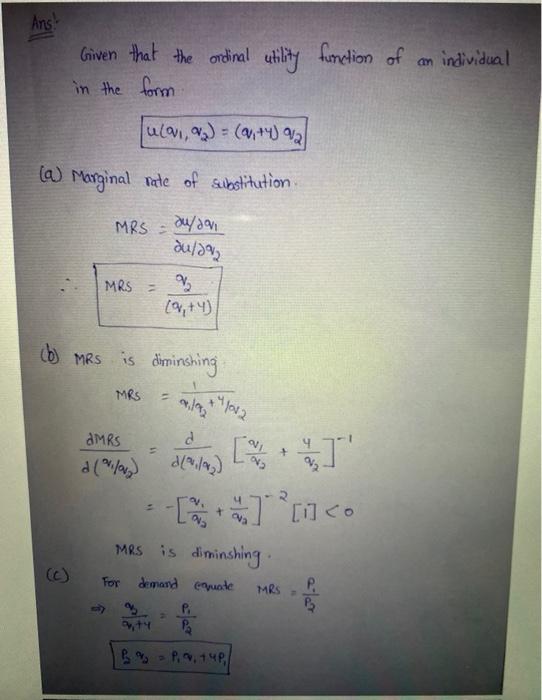 Ans!
Given that the ordinal utility function of an individual
in the form
u(q₁, q₂) = (q₁+4) q₂
(a) Marginal rate of substitution.
MRS = ∂u/∂q₁ / ∂u/∂q₂
∴ MRS = q₂ / (q₁+4)
(b) MRS is diminshing
MRS = 1 / (q₁/q₂ + 4/q₂)
dMRS / d(q₁/q₂) = d / d(q₁/q₂) [q₁/q₂ + 4/q₂]⁻¹
= -[q₁/q₂ + 4/q₂]⁻² [1] < 0
MRS is diminshing.
(c) For demand equate MRS = P₁/P₂
⇒ q₂ / q₁+4 = P₁/P₂
P₂ q₂ = P₁ q₁ + 4P₁